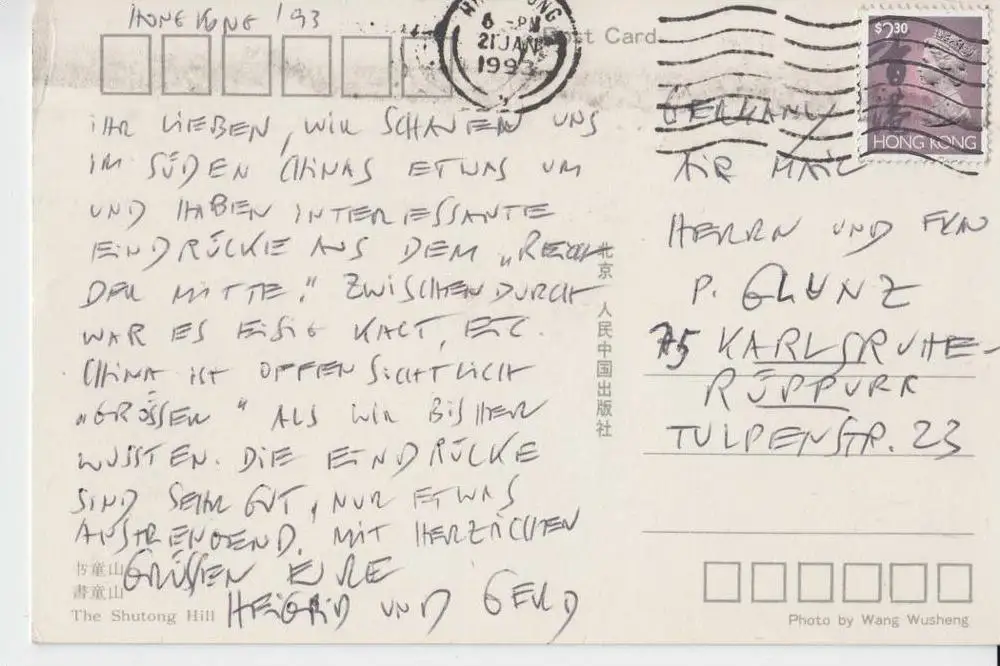 HONG KONG '93
HONG KONG
6 -PM
21 JAN
1993
Post Card
$2.30
香港
HONG KONG
IHR LIEBEN, WIR SCHAUEN UNS
IM SÜDEN CHINAS ETWAS UM
UND HABEN INTERESSANTE
EINDRÜCKE AUS DEM „REICH
DER MITTE." ZWISCHENDURCH
WAR ES EISIG KALT, ETC.
CHINA IST OFFENSICHTLICH
„GRÖSSER" ALS WIR BISHER
WUSSTEN. DIE EINDRÜCKE
SIND SEHR GUT, NUR ETWAS
ANSTRENGEND. MIT HERZLICHEN
GRÜSSEN EURE
UND GERD
书童山
書童山
The Shutong Hill
北京 人民中国出版社
GERMANY
AIR MAIL
HERRN UND FRAU
P. GLUNZ
75 KARLSRUHE-
RÜPPURR
TULPENSTR. 23
Photo by Wang Wusheng